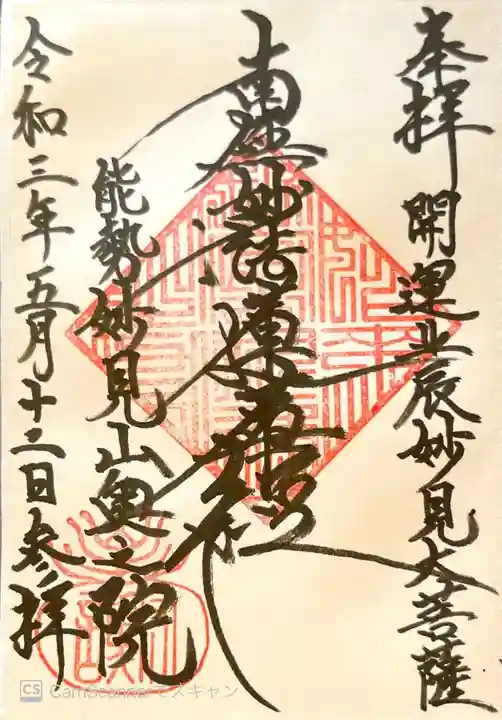 奉拝 開運北辰妙見大菩薩
南無妙法蓮華経
能勢妙見山奥之院
令和三年五月十二日参拝
CS CamScannerでスキャン